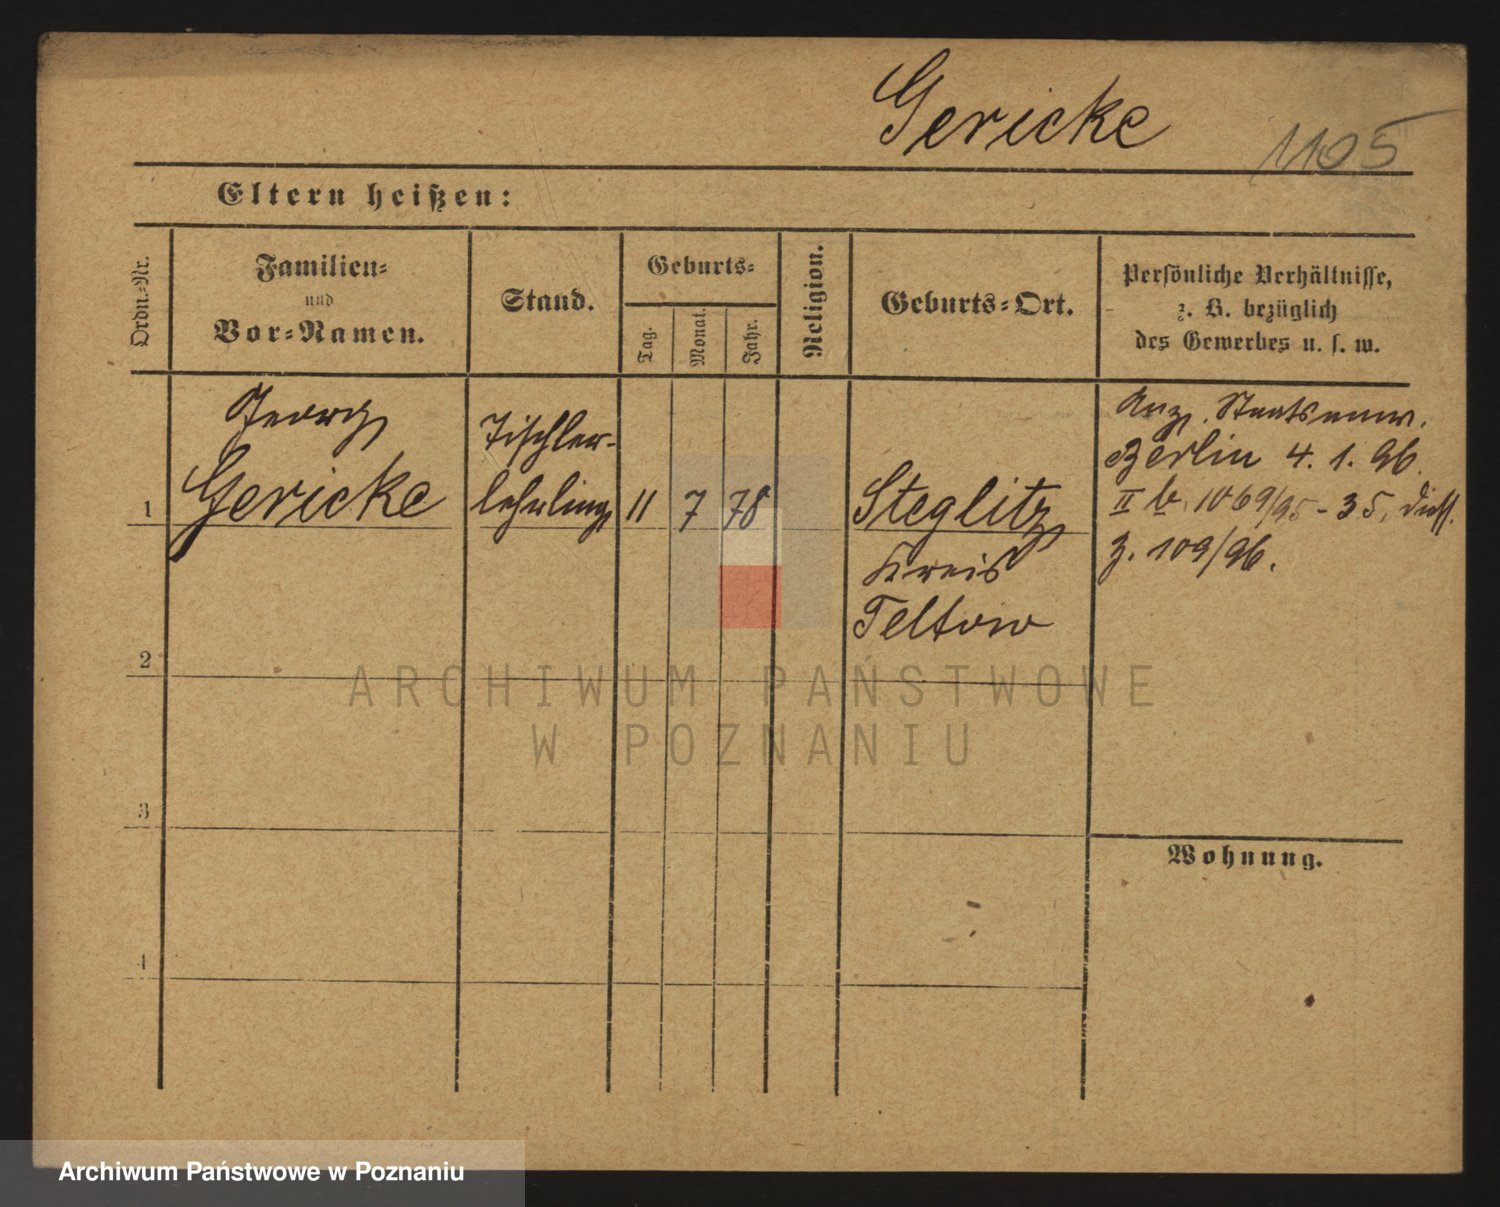 Gericke
1105
Eltern heißen:
Ordn.-Nr.
Familien-
und
Vor-Namen.
Stand.
Geburts-
Tag.
Monat.
Jahr.
Religion.
Geburts-Ort.
Persönliche Verhältnisse,
z. B. bezüglich
des Gewerbes u. s. w.
1
Georg
Gericke
Tischler-
lehrling
11
7
78
Steglitz
Kreis
Teltow
Anz. Staatsanw.
Berlin 4. 1. 96.
II b. 1069/95 - 35.
Z. 109/96.
2
3
4
Wohnung.
ARCHIWUM PAŃSTWOWE
W POZNANIU
Archiwum Państwowe w Poznaniu